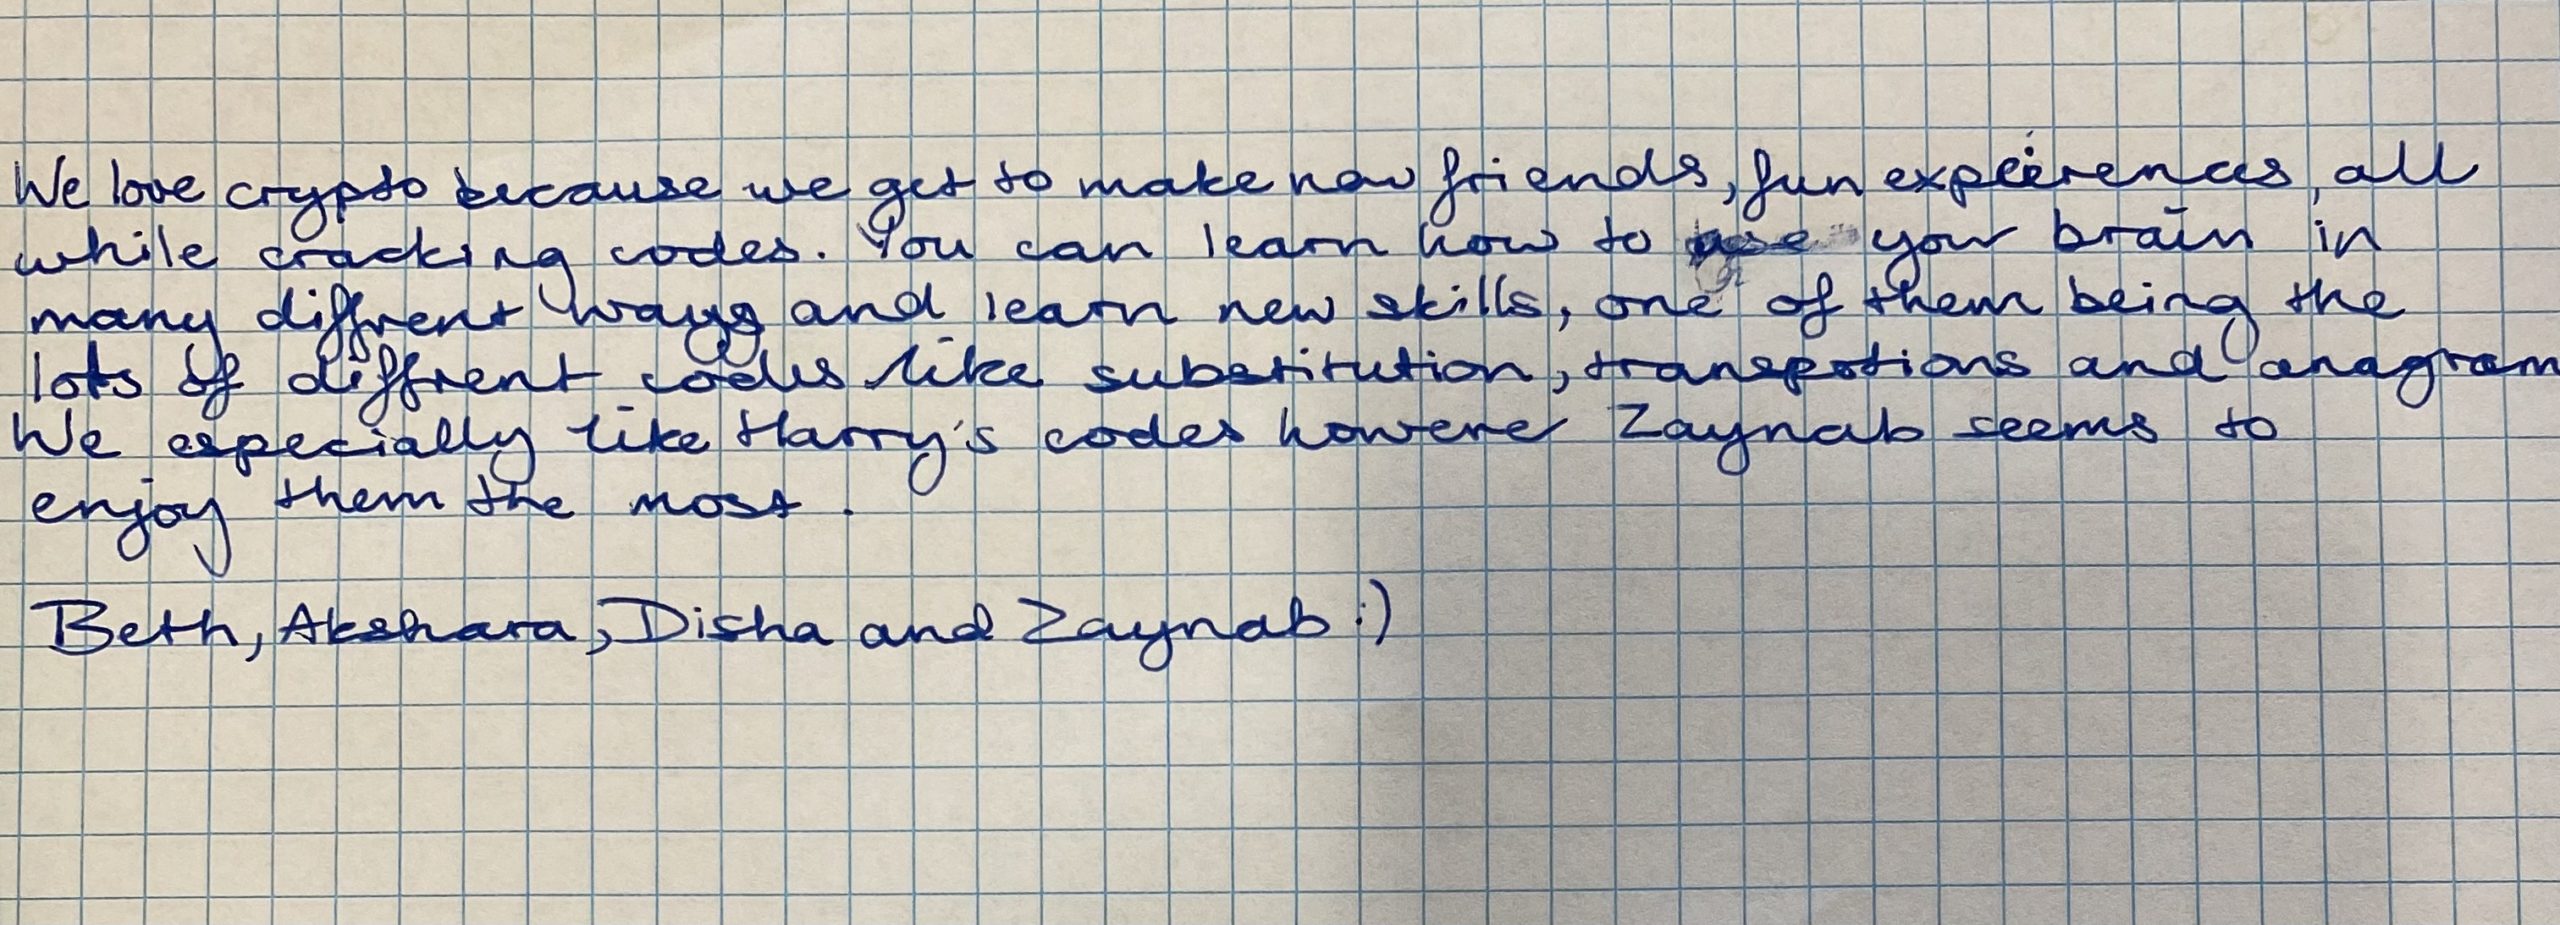 We love crypto because we get to make new friends, fun expeirences, all
while cracking codes. You can learn how to use your brain in
many diffrent ways and learn new skills, one of them being the
lots of diffrent codes like substitution, transpotions and anagram
We especially like Harry's codes howerer Zaynab seems to
enjoy them the most.
Beth, Akshara, Disha and Zaynab :)